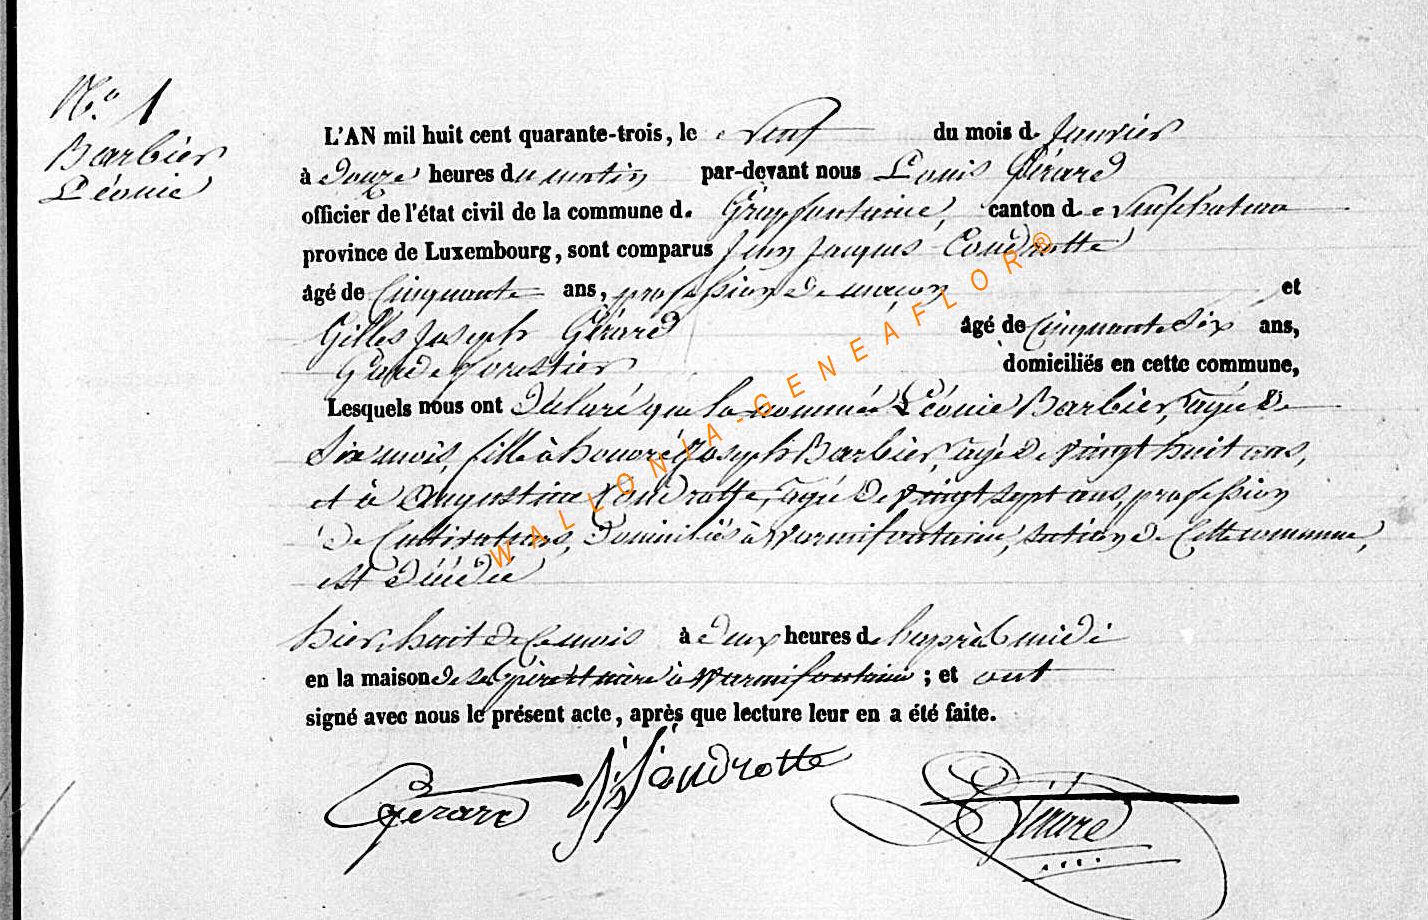 N.° 1
Barbier
Léonie
L'AN mil huit cent quarante-trois, le neuf du mois de Janvier
à douze heures du matin par-devant nous Louis Gérard
officier de l'état civil de la commune d. Grapfontaine, canton de Neufchateau
province de Luxembourg, sont comparus Jean Jacques Coudrotte
âgé de Cinquante ans, profession de maçon et
Gilles Joseph Gérard âgé de Cinquante Six ans,
Garde forestier domiciliés en cette commune,
Lesquels nous ont Déclaré que la nommée Léonie Barbier, agée de
Six mois, fille à honoré Joseph Barbier, agé de vingt huit ans,
et à Augustine Coudrotte, agée de vingt sept ans, profession
de Cultivateurs, Domiciliés à Warmifontaine, section de Cette commune,
est décédée
hier huit de Ce mois à deux heures de l'après midi
en la maison de ses père et mère à Warmifontaine ; et ont
signé avec nous le présent acte, après que lecture leur en a été faite.
Gérard JJ Coudrotte L Gérard
WALLONIA-GENEAFLOR®